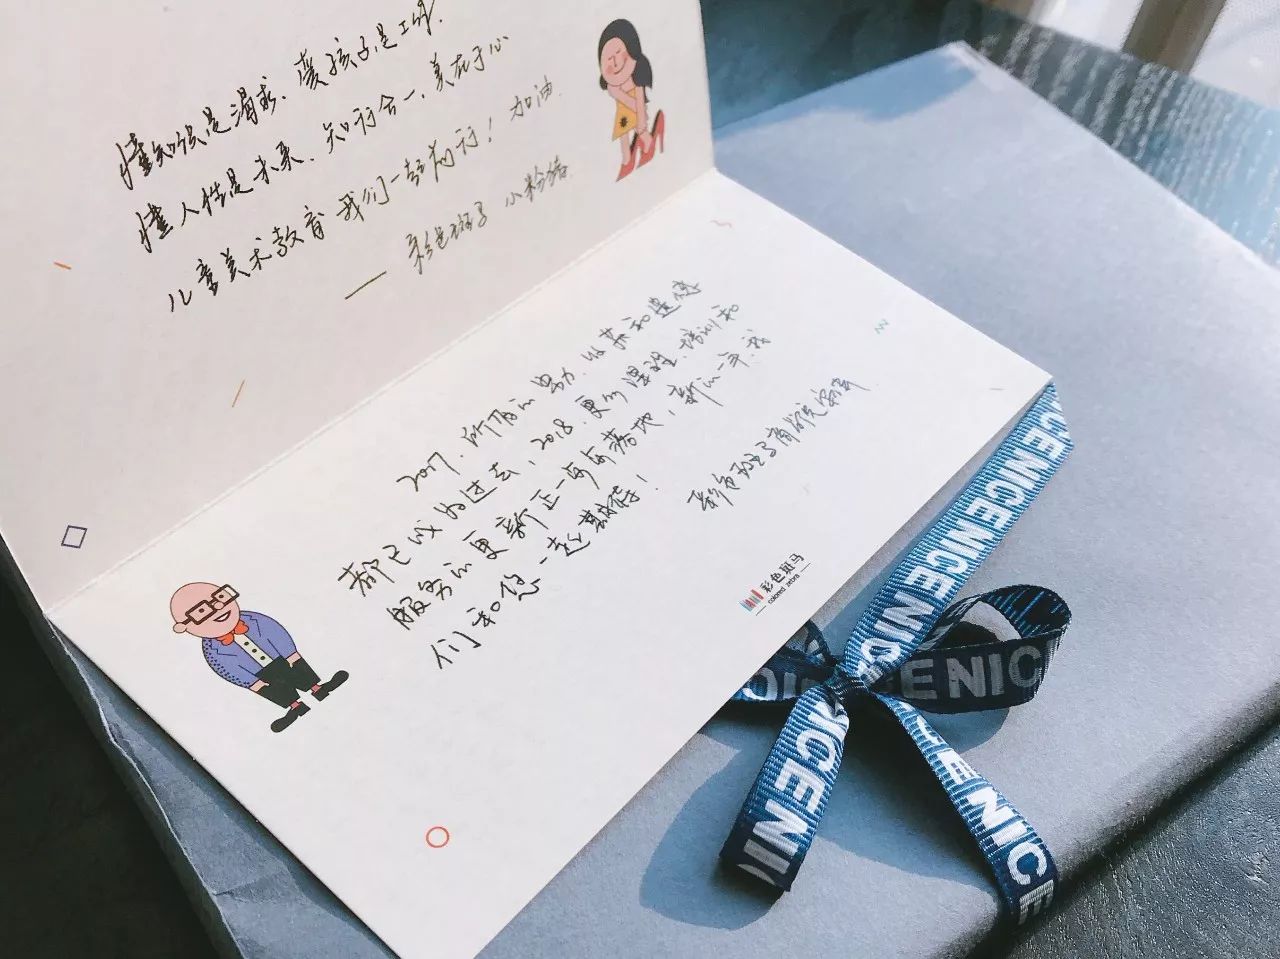 懂知识是渴求、爱孩子是工作
懂人性是未来、知行合一、美在于心
儿童美术教育 我们一起前行！加油
—— 彩色斑马 小粉猪
2017，所有的努力、收获和遗憾
都已成为过去，2018，更好课程、培训和
服务的更新正一步步落地，新的一年，我
们和您一起期待！
彩色斑马
彩色斑马
colored zebra
NICENICENICENICE
NICE
NICE
NICE